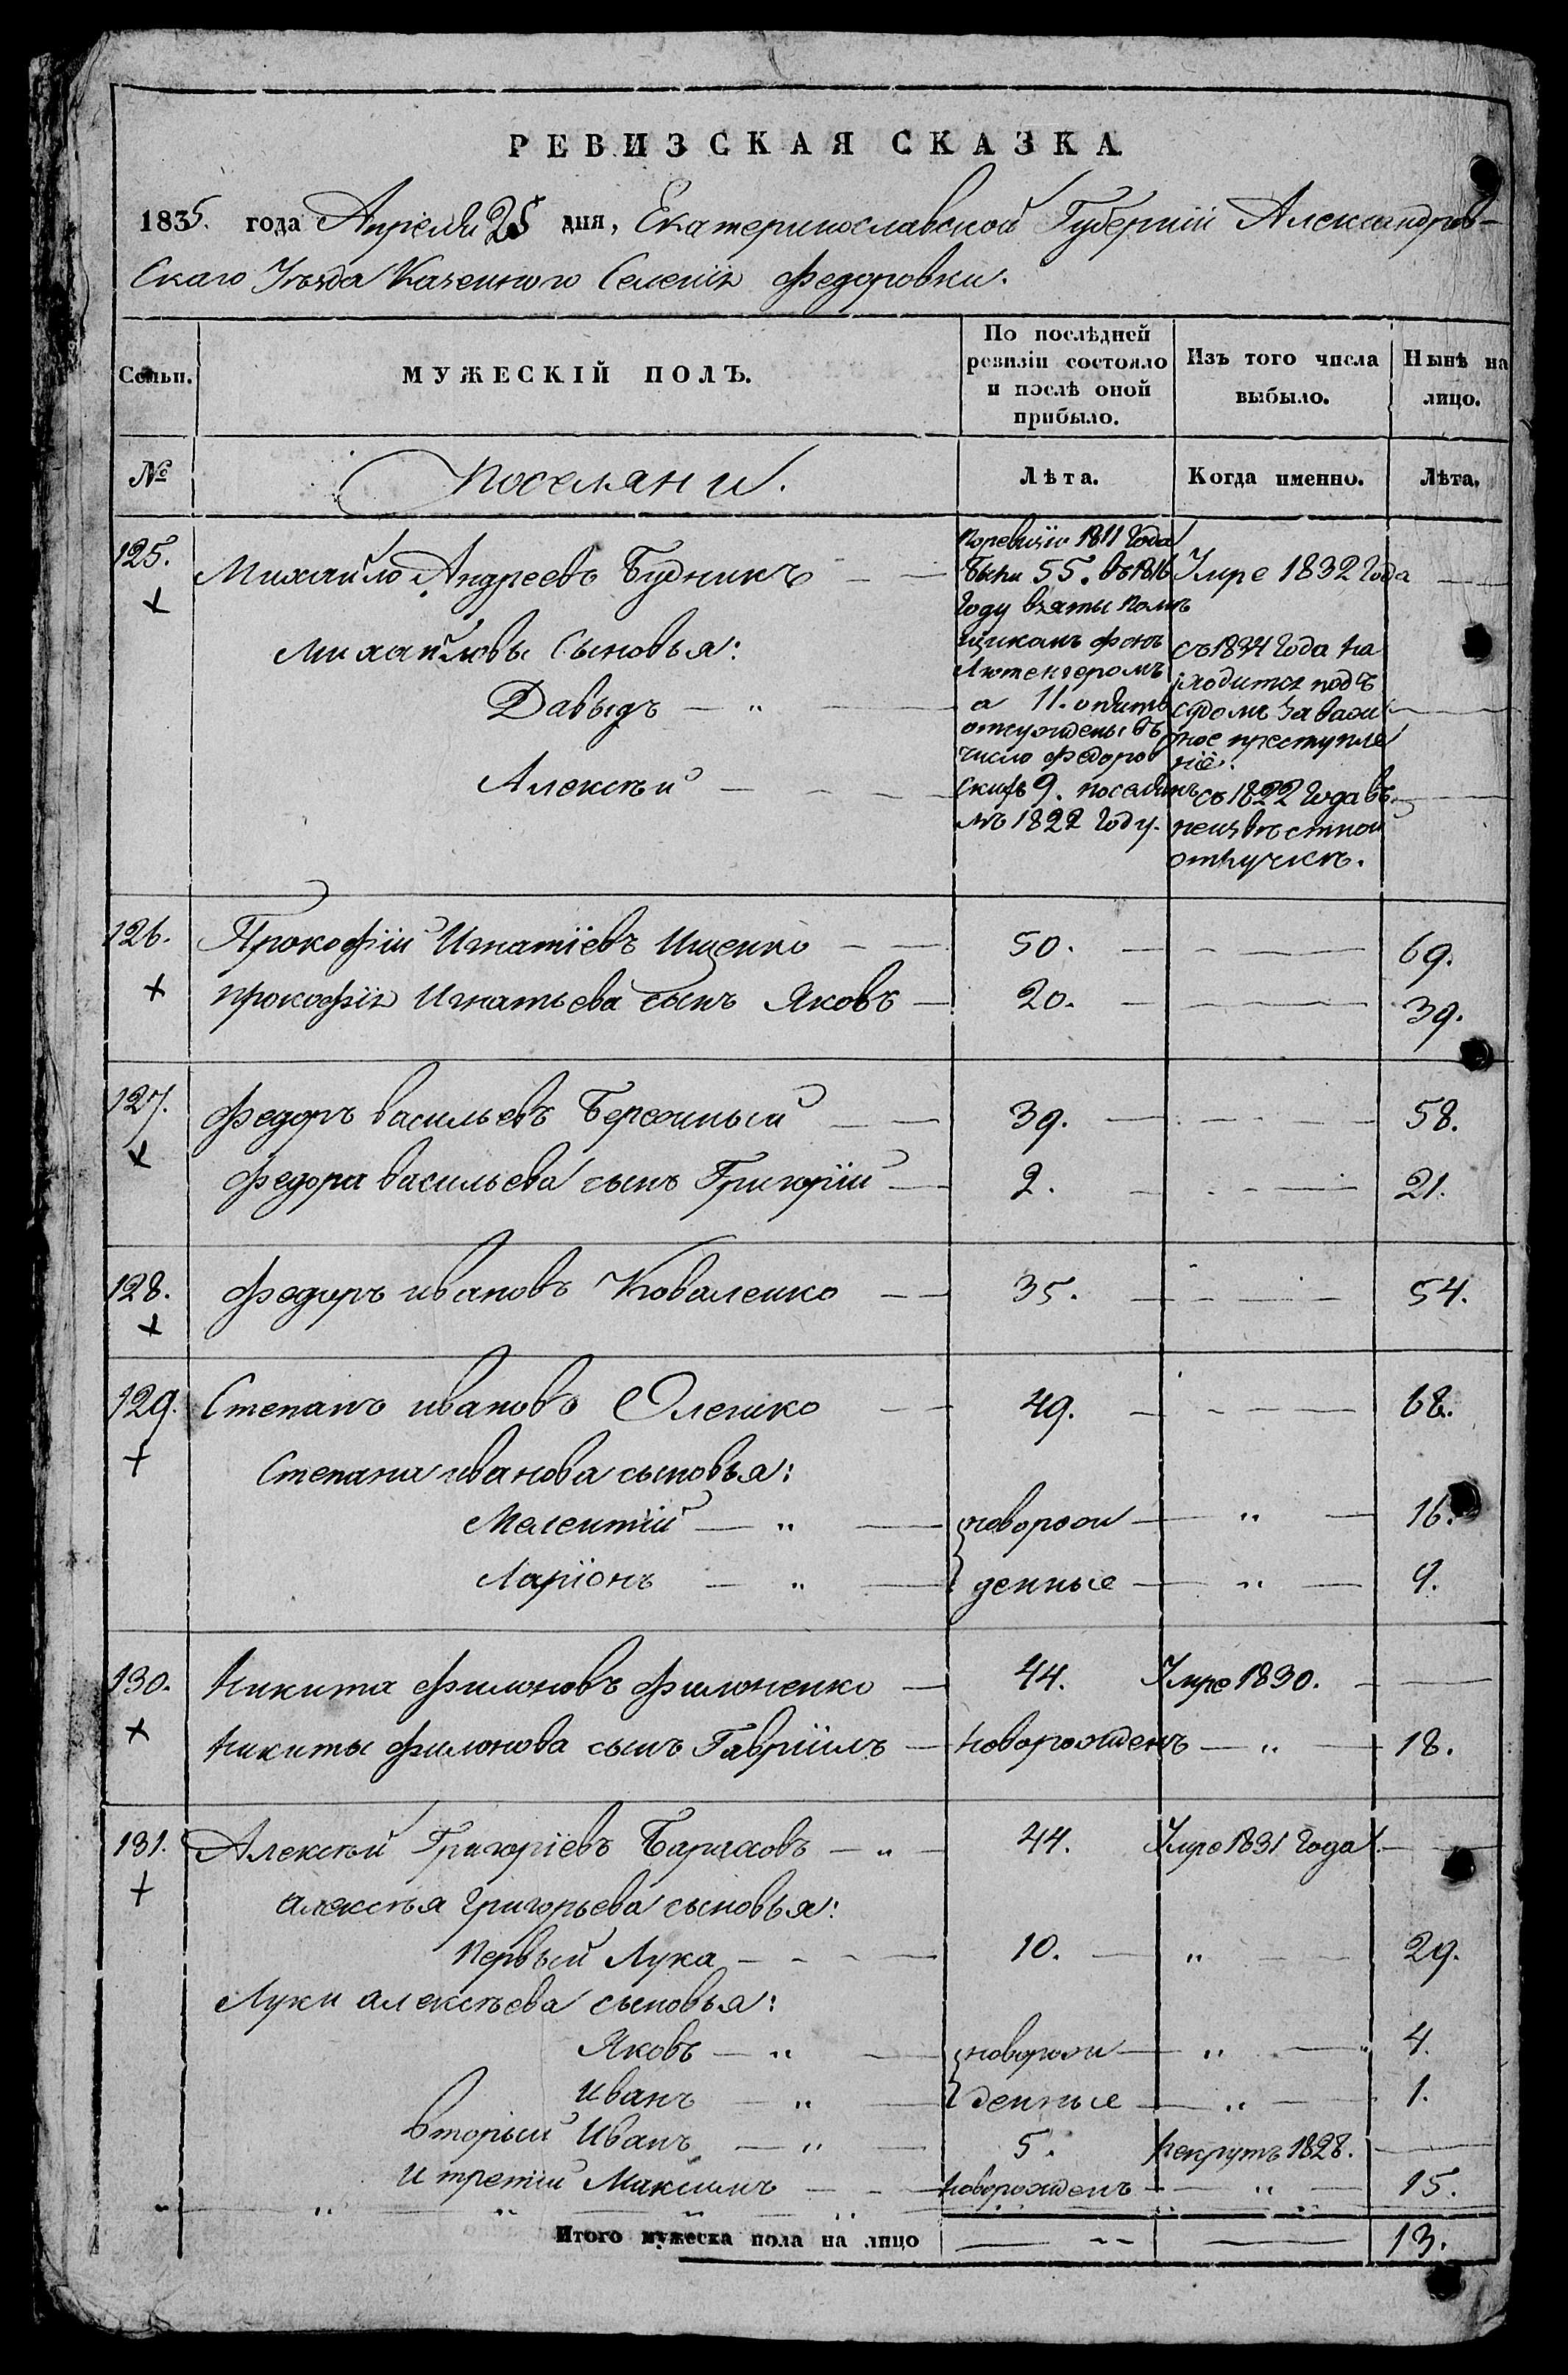 РЕВИЗСКАЯ СКАЗКА
1835. года Апреля 25 дня, Екатеринославской Губерніи Александров-
скаго Уѣзда Казенного Селенія Федоровки.
Семьи. МУЖЕСКІЙ ПОЛЪ. По послѣдней ревизіи состояло и послѣ оной прибыло. Изъ того числа выбыло. Нынѣ на лицо.
№ Поселяни. Лѣта. Когда именно. Лѣта.
125. Михайло Андреевъ Будникъ
Поревизіи 1811 Года
были 55. въ 1816
Году взяты помѣ
щикомъ фонъ
Лютенгеромъ
а 11. опять
отсуждены въ
число Федоров
скихъ 9. поселянъ
въ 1822 Году.
Умре 1832 Года
Михайловы Сыновья:
Давыдъ — „
съ 1834 Года на
ходится подъ
судомъ за важ
ное преступле
ніе.
Алексѣй
съ 1822 Года въ
неизвѣстной
отлучкѣ.
126. Прокофій Игнатіевъ Ищенко 50. 69.
прокофія Игнатьева сынъ Яковъ 20. 39.
127. Федоръ васильевъ Бережный 39. 58.
Федора васильева сынъ Григорій 2. 21.
128. Федоръ ивановъ Коваленко 35. 54.
129. Степанъ ивановъ Олешко 49. 68.
Степана иванова сыновья:
Мелентій — „ — новорож — „ — 16.
Ларіонъ — „ — денные — „ — 9.
130. Никита Филоновъ Филоненко 44. Умре 1830.
Никиты Филонова сынъ Гавріилъ — новорожденъ — „ — 18.
131. Алексѣй Григоріевъ Барсковъ — „ 44. Умре 1831 Года.
алексѣя григорьева сыновья:
Первый Лука 10. „ 29.
Луки алексѣева сыновья:
Яковъ — „ — новорож — „ — 4.
Иванъ — „ — денные — „ — 1.
вторый Иванъ — „ — 5. рекрутъ 1828.
и третій Максимъ — новорожденъ — „ — 15.
Итого мужеска пола на лицо 13.